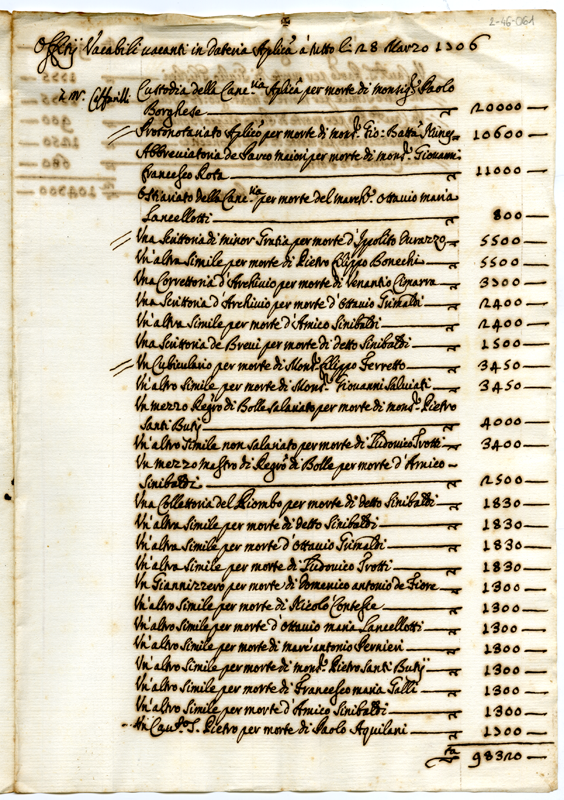 2-46-061
Offitij Vacabili vacanti in Dateria Aplica à tutto li 28 Marzo 1706
Custodia della Canc.ria Aplica per morte di monsig.r Paolo
Borghese 20000
Protonotariato Aplico per morte di mons.r Gio: Batta 10600
Abbreviatoria de Parco maiori per morte di mons.r Giovanni
Francesco Rota 11000
Ostiariato della Canc.ria per morte del march.e Ottavio maria
Lancellotti 800
Una Scrittoria di minor Gratia per morte d'Ipolito Durazzo 5500
Un'altra Simile per morte di Pietro Filippo Bonechi 5500
Una Correttoria d'Archivio per morte di Venantio Cimarra 3300
Una Scrittoria d'Archivio per morte d'Ottavio Grimaldi 2400
Un'altra Simile per morte d'Amico Sinibaldi 2400
Una Scrittoria de Brevi per morte di detto Sinibaldi 1500
Un Cubiculario per morte di Mons.r Filippo Ferretto 3450
Un'altro Simile per morte di Mons.r Giovanni Salviati 3450
Un mezzo Reg.ro di Bolle salariato per morte di mons.r Pietro
Santi Butij 4000
Un'altro Simile non salariato per morte di Ludovico Trotti 3400
Un mezzo mastro di Reg.ro di Bolle per morte d'Amico
Sinibaldi 2500
Una Collettoria del Piombo per morte di detto Sinibaldi 1830
Un'altra Simile per morte di detto Sinibaldi 1830
Un'altra Simile per morte d'Ottavio Grimaldi 1830
Un'altra Simile per morte di Ludovico Trotti 1830
Un Giannizzero per morte di Domenico antonio de Fiore 1300
Un'altro Simile per morte di Nicolò 1300
Un'altro Simile per morte d'Ottavio maria Lancellotti 1300
Un'altro Simile per morte di marc'antonio 1300
Un'altro Simile per morte di mons.r Pietro Santi Butij 1300
Un'altro Simile per morte di Francesco maria Galli 1300
Un'altro Simile per morte d'Amico Sinibaldi 1300
Un Cau.ro S. Pietro per morte di Paolo Aquilani 1300
98320